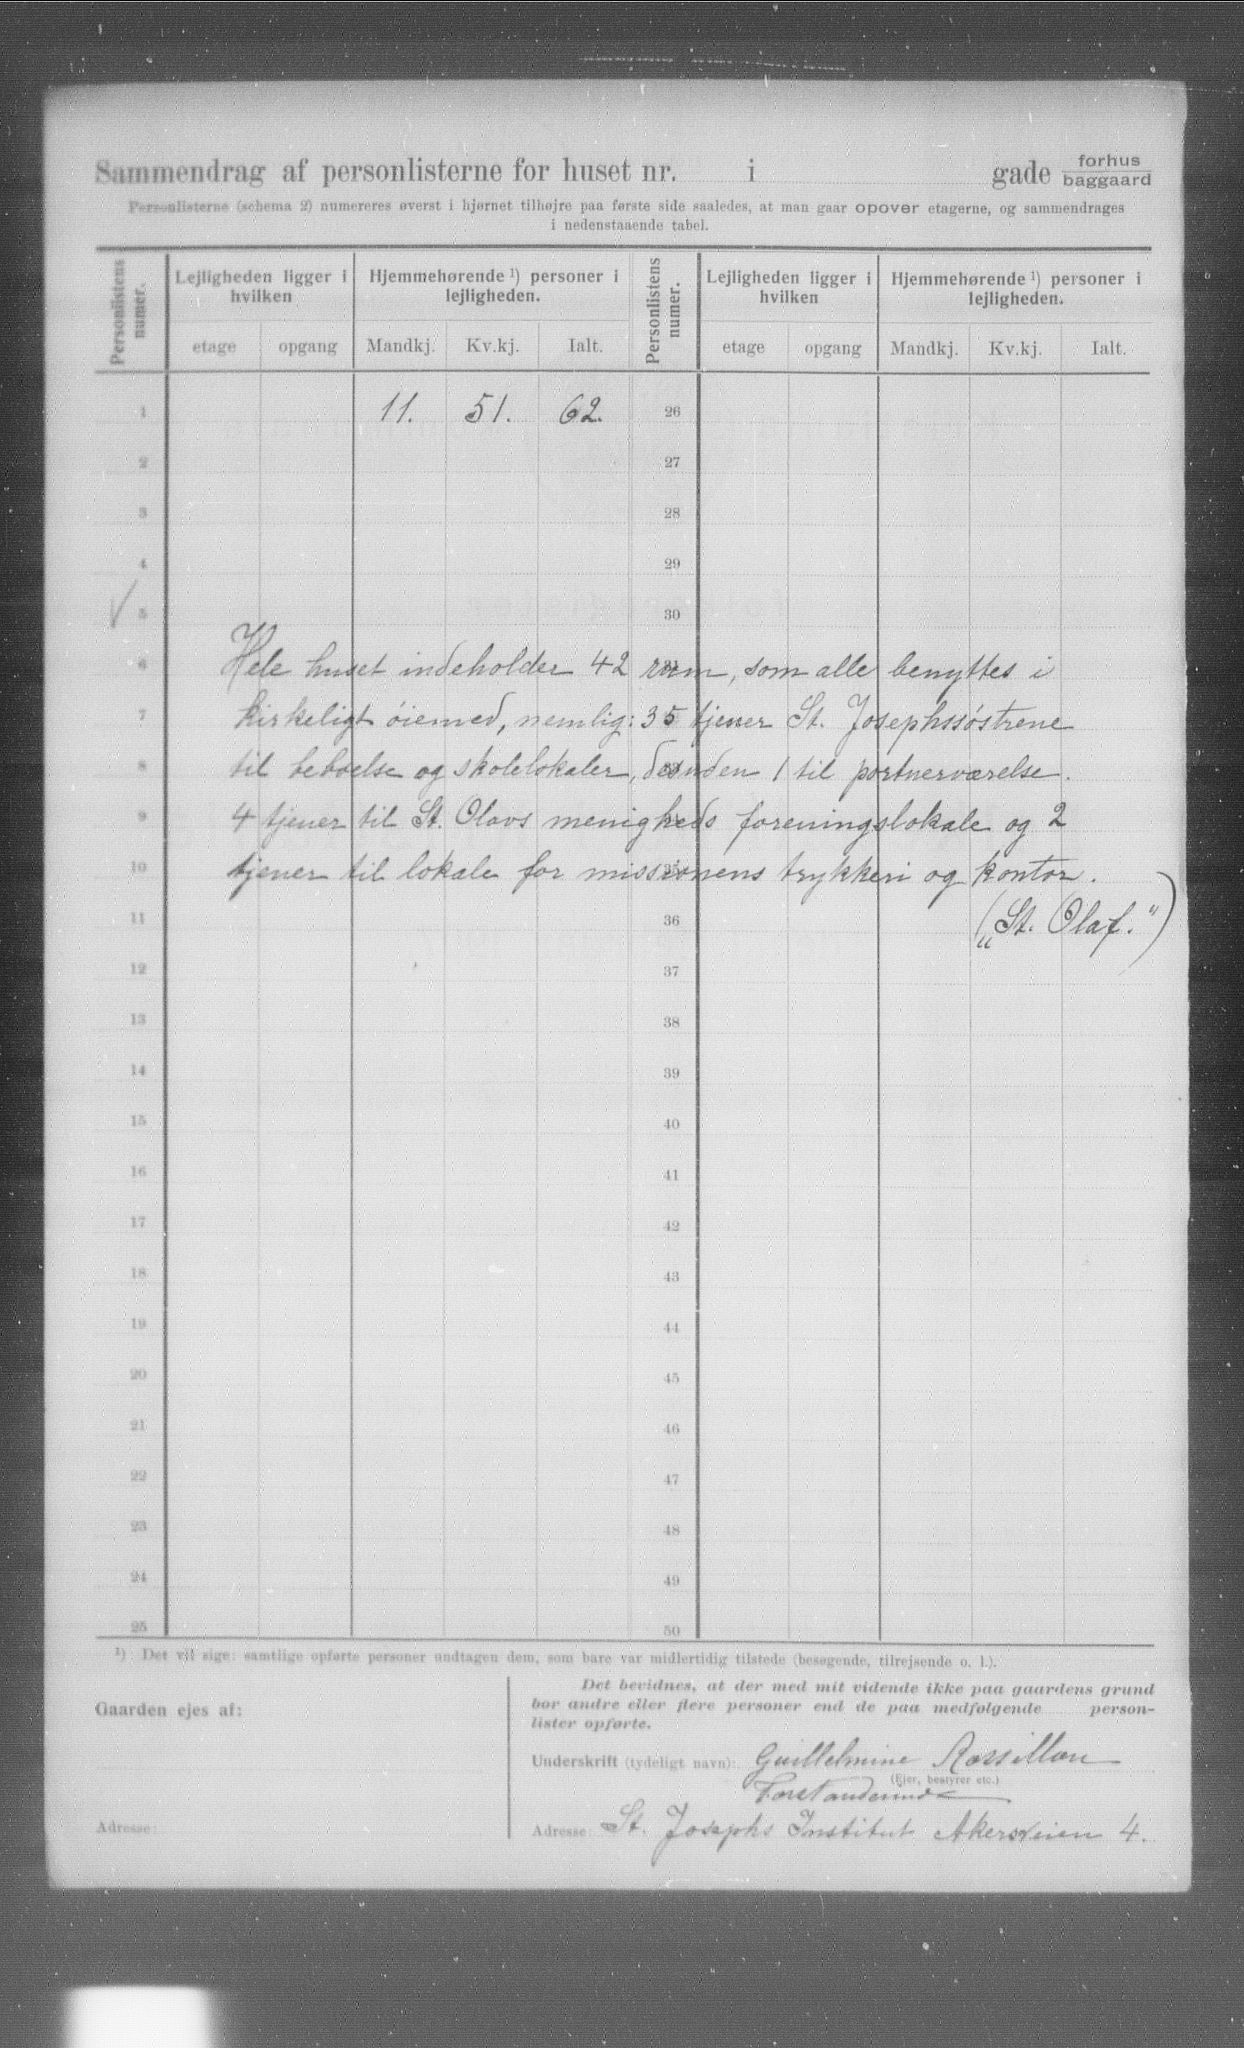 Sammendrag af personlisterne for huset nr. i gade forhus baggaard
Personlisterne (schema 2) numereres øverst i hjørnet tilhøjre paa første side saaledes, at man gaar opover etagerne, og sammendrages
i nedenstaaende tabel.
Personlistens numer. Lejligheden ligger i hvilken Hjemmehørende ¹) personer i lejligheden. Personlistens numer. Lejligheden ligger i hvilken Hjemmehørende ¹) personer i lejligheden.
etage opgang Mandkj. Kv.kj. Ialt. etage opgang Mandkj. Kv.kj. Ialt.
1 11. 51. 62. 26
2 27
3 28
4 29
5 30
6 Hele huset indeholder 42 rum, som alle benyttes i
7 kirkeligt øiemed, nemlig: 35 tjener St. Josephssøstrene
8 til beboelse og skolelokaler, desuden 1 til portnerværelse.
9 4 tjener til St. Olavs menigheds foreningslokale og 2
10 tjener til lokale for missionens trykkeri og kontor.
(„St. Olaf.")
11 36
12 37
13 38
14 39
15 40
16 41
17 42
18 43
19 44
20 45
21 46
22 47
23 48
24 49
25 50
¹) Det vil sige: samtlige opførte personer undtagen dem, som bare var midlertidig tilstede (besøgende, tilrejsende o. l.).
Gaarden ejes af:
Adresse:
Det bevidnes, at der med mit vidende ikke paa gaardens grund
bor andre eller flere personer end de paa medfølgende person-
lister opførte.
Underskrift (tydeligt navn): Guillelmine Rossillon
(Ejer, bestyrer etc.)
Forstanderinde
Adresse: St. Josephs Institut Akersveien 4.